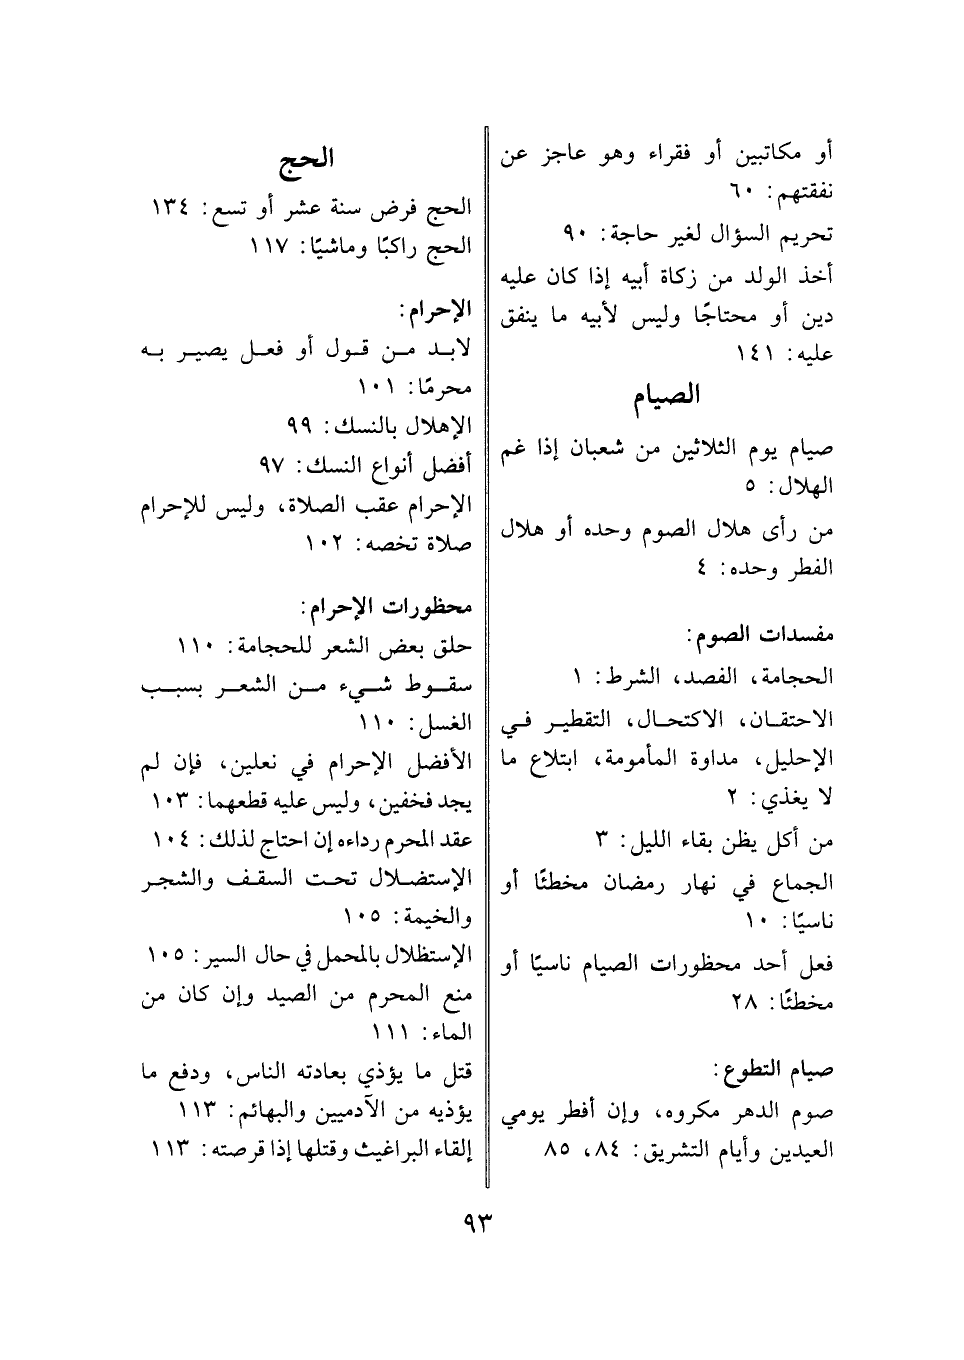 أو مكاتبين أو فقراء وهو عاجز عن
نفقتهم: ٦٠
تحريم السؤال لغير حاجة: ٩٠
أخذ الولد من زكاة أبيه إذا كان عليه
دين أو محتاجًا وليس لأبيه ما ينفق
عليه: ١٤١
الصيام
صيام يوم الثلاثين من شعبان إذا غم
الهلال: ٥
من رأى هلال الصوم وحده أو هلال
الفطر وحده: ٤
مفسدات الصوم:
الحجامة، الفصد، الشرط: ١
الاحتقـان، الاكتحـال، التقطيـر فـي
الإحليل، مداوة المأمومة، ابتلاع ما
لا يغذي: ٢
من أكل يظن بقاء الليل: ٣
الجماع في نهار رمضان مخطئًا أو
ناسيًا: ١٠
فعل أحد محظورات الصيام ناسيًا أو
مخطئًا: ٢٨
صيام التطوع:
صوم الدهر مكروه، وإن أفطر يومي
العيدين وأيام التشريق: ٨٤، ٨٥
الحج
الحج فرض سنة عشر أو تسع: ١٣٤
الحج راكبًا وماشيًا: ١١٧
الإحرام:
لابـد مـن قـول أو فعـل يصيـر بـه
محرمًا: ١٠١
الإهلال بالنسك: ٩٩
أفضل أنواع النسك: ٩٧
الإحرام عقب الصلاة، وليس للإحرام
صلاة تخصه: ١٠٢
محظورات الإحرام:
حلق بعض الشعر للحجامة: ١١٠
سقـوط شـيء مـن الشعـر بسبـب
الغسل: ١١٠
الأفضل الإحرام في نعلين، فإن لم
يجد فخفين، وليس عليه قطعهما: ١٠٣
عقد المحرم رداءه إن احتاج لذلك: ١٠٤
الإستضـلال تحـت السقـف والشجـر
والخيمة: ١٠٥
الإستظلال بالمحمل في حال السير: ١٠٥
منع المحرم من الصيد وإن كان من
الماء: ١١١
قتل ما يؤذي بعادته الناس، ودفع ما
يؤذيه من الآدميين والبهائم: ١١٣
إلقاء البراغيث وقتلها إذا قرصته: ١١٣
٩٣